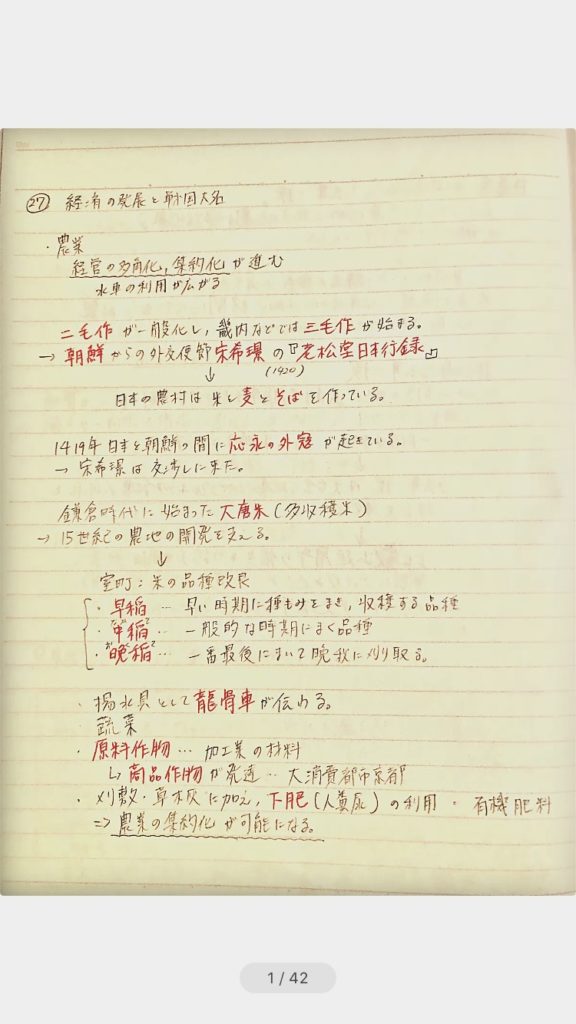 ㉗ 経済の発展と戦国大名
・農業
経営の多角化,集約化が進む
水車の利用が広がる
二毛作が一般化し,畿内などでは三毛作が始まる。
→朝鮮からの外交使節宋希璟の『老松堂日本行録』
↓ (1420)
日本の農村は米と麦とそばを作っている。
1419年日本と朝鮮の間に応永の外寇が起きている。
→宋希璟は交渉しに来た。
鎌倉時代に始まった大唐米(多収穫米)
→15世紀の農地の開発を支える。
↓
室町:米の品種改良
・早稲…早い時期に種もみをまき,収穫する品種
・中稲…一般的な時期にまく品種
・晩稲…一番最後にまいて晩秋に刈り取る。
・揚水具として龍骨車が伝わる。
・蔬菜
・原料作物…加工業の材料
↳商品作物が発達…大消費都市京都
・刈敷・草木灰に加え,下肥(人糞尿)の利用・有機肥料
⇒農業の集約化が可能になる。
1 / 42